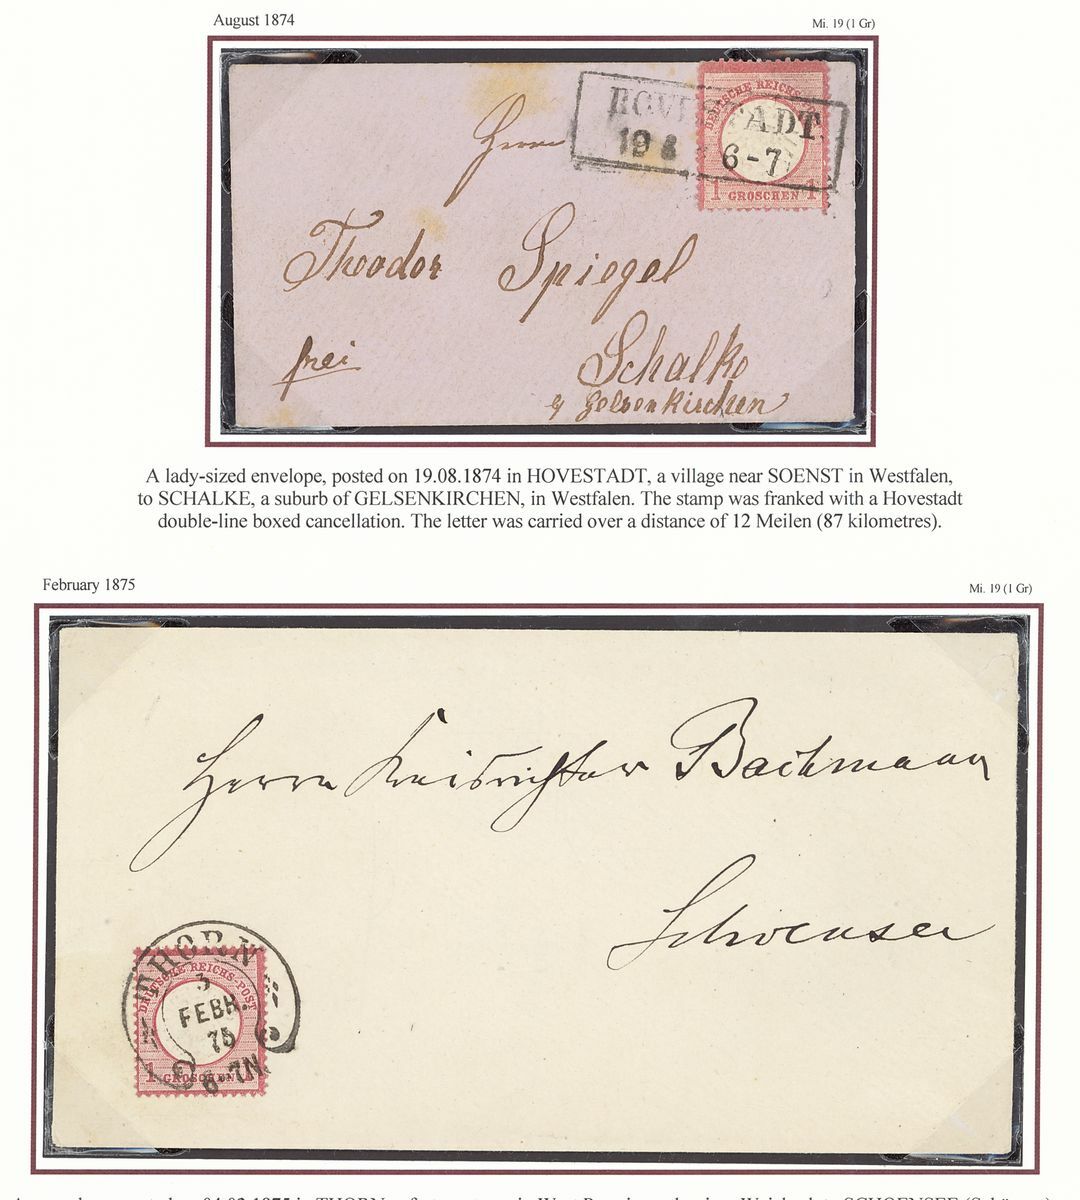 August 1874
Mi. 19 (1 Gr)
HOVESTADT.
19 8 6-7
DEUTSCHE REICHS-POST
1 GROSCHEN 1
Herrn
Theodor Spiegel
Schalke
frei
b/ Gelsenkirchen
A lady-sized envelope, posted on 19.08.1874 in HOVESTADT, a village near SOENST in Westfalen,
to SCHALKE, a suburb of GELSENKIRCHEN, in Westfalen. The stamp was franked with a Hovestadt
double-line boxed cancellation. The letter was carried over a distance of 12 Meilen (87 kilometres).
February 1875
Mi. 19 (1 Gr)
Herrn Kreisrichter Bachmann
Schoensee
THORN
DEUTSCHE REICHS-POST
3
FEBR.
75
6-7N.
1 GROSCHEN 1